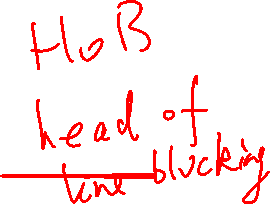 HoB
head of
line blocking